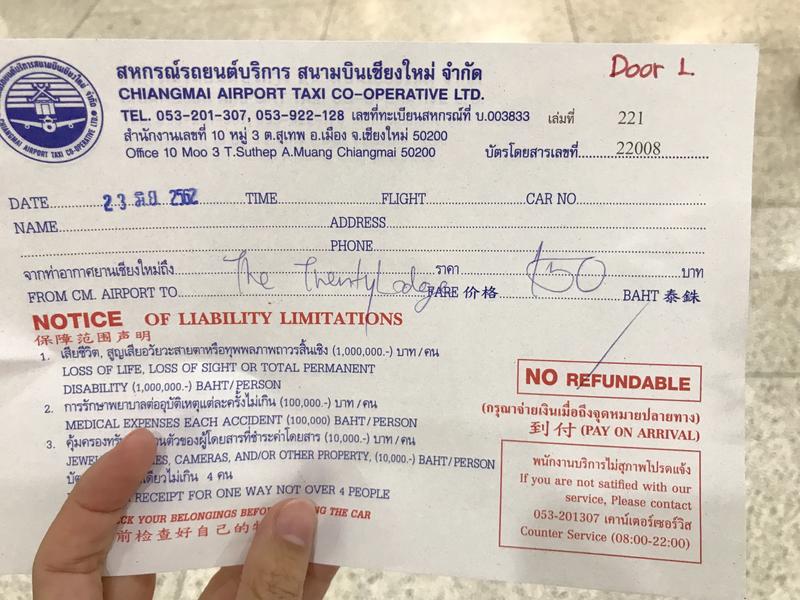 สหกรณ์รถยนต์บริการ สนามบินเชียงใหม่ จำกัด
Door 1.
CHIANGMAI AIRPORT TAXI CO-OPERATIVE LTD.
TEL. 053-201-307, 053-922-128 เลขที่ทะเบียนสหกรณ์ที่ บ.003833 เล่มที่ 221
สำนักงานเลขที่ 10 หมู่ 3 ต.สุเทพ อ.เมือง จ.เชียงใหม่ 50200
Office 10 Moo 3 T.Suthep A.Muang Chiangmai 50200 บัตรโดยสารเลขที่ 22008
CHIANGMAI AIRPORT TAXI CO-OPERATIVE LTD.
DATE 23 มิ.ย. 2562 TIME FLIGHT CAR NO.
NAME ADDRESS
PHONE
จากท่าอากาศยานเชียงใหม่ถึง The Twenty Lodge ราคา 150 บาท
FROM CM. AIRPORT TO FARE 价格 BAHT 泰銖
NOTICE OF LIABILITY LIMITATIONS
保障范围声明
1. เสียชีวิต, สูญเสียอวัยวะสายตาหรือทุพพลภาพถาวรสิ้นเชิง (1,000,000.-) บาท/คน
LOSS OF LIFE, LOSS OF SIGHT OR TOTAL PERMANENT
DISABILITY (1,000,000.-) BAHT/PERSON
2. การรักษาพยาบาลต่ออุบัติเหตุแต่ละครั้งไม่เกิน (100,000.-) บาท/คน
MEDICAL EXPENSES EACH ACCIDENT (100,000) BAHT/PERSON
3. คุ้มครองทรั ตัวของผู้โดยสารที่ชำระค่าโดยสาร (10,000.-) บาท/คน
CAMERAS, AND/OR OTHER PROPERTY, (10,000.-) BAHT/PERSON
ไม่เกิน 4 คน
RECEIPT FOR ONE WAY NOT OVER 4 PEOPLE
YOUR BELONGINGS THE CAR
前检查好自己的
NO REFUNDABLE
(กรุณาจ่ายเงินเมื่อถึงจุดหมายปลายทาง)
到付 (PAY ON ARRIVAL)
พนักงานบริการไม่สุภาพโปรดแจ้ง
If you are not satified with our
service, Please contact
053-201307 เคาน์เตอร์เซอร์วิส
Counter Service (08:00-22:00)